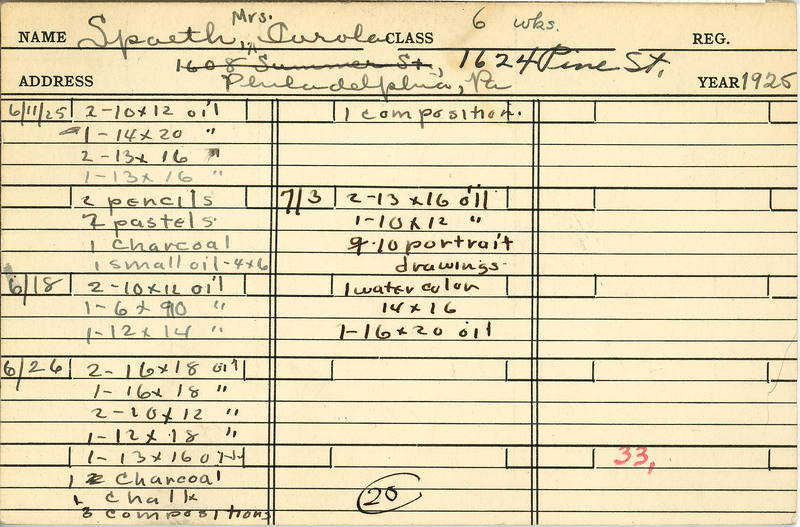 Mrs.
NAME Spaeth, Carola CLASS 6 wks. REG.
1608 Summer St, 1624 Pine St.
ADDRESS Philadelphia, Pa YEAR 1925
6/11/25 2-10x12 oil
1-14x20 "
2-13x16 "
1-13x16 "
2 pencils
2 pastels
1 charcoal
1 small oil-4x6
6/18 2-10x12 oil
1-6x90 "
1-12x14 "
6/26 2-16x18 oil
1-16x18 "
2-10x12 "
1-12x18 "
1-13x16 oil
2 charcoal
1 chalk
3 compositions
1 composition.
7/3 2-13x16 oil
1-10x12 "
9-10 portrait
drawings
1 watercolor
14x16
1-16x20 oil
20
33,